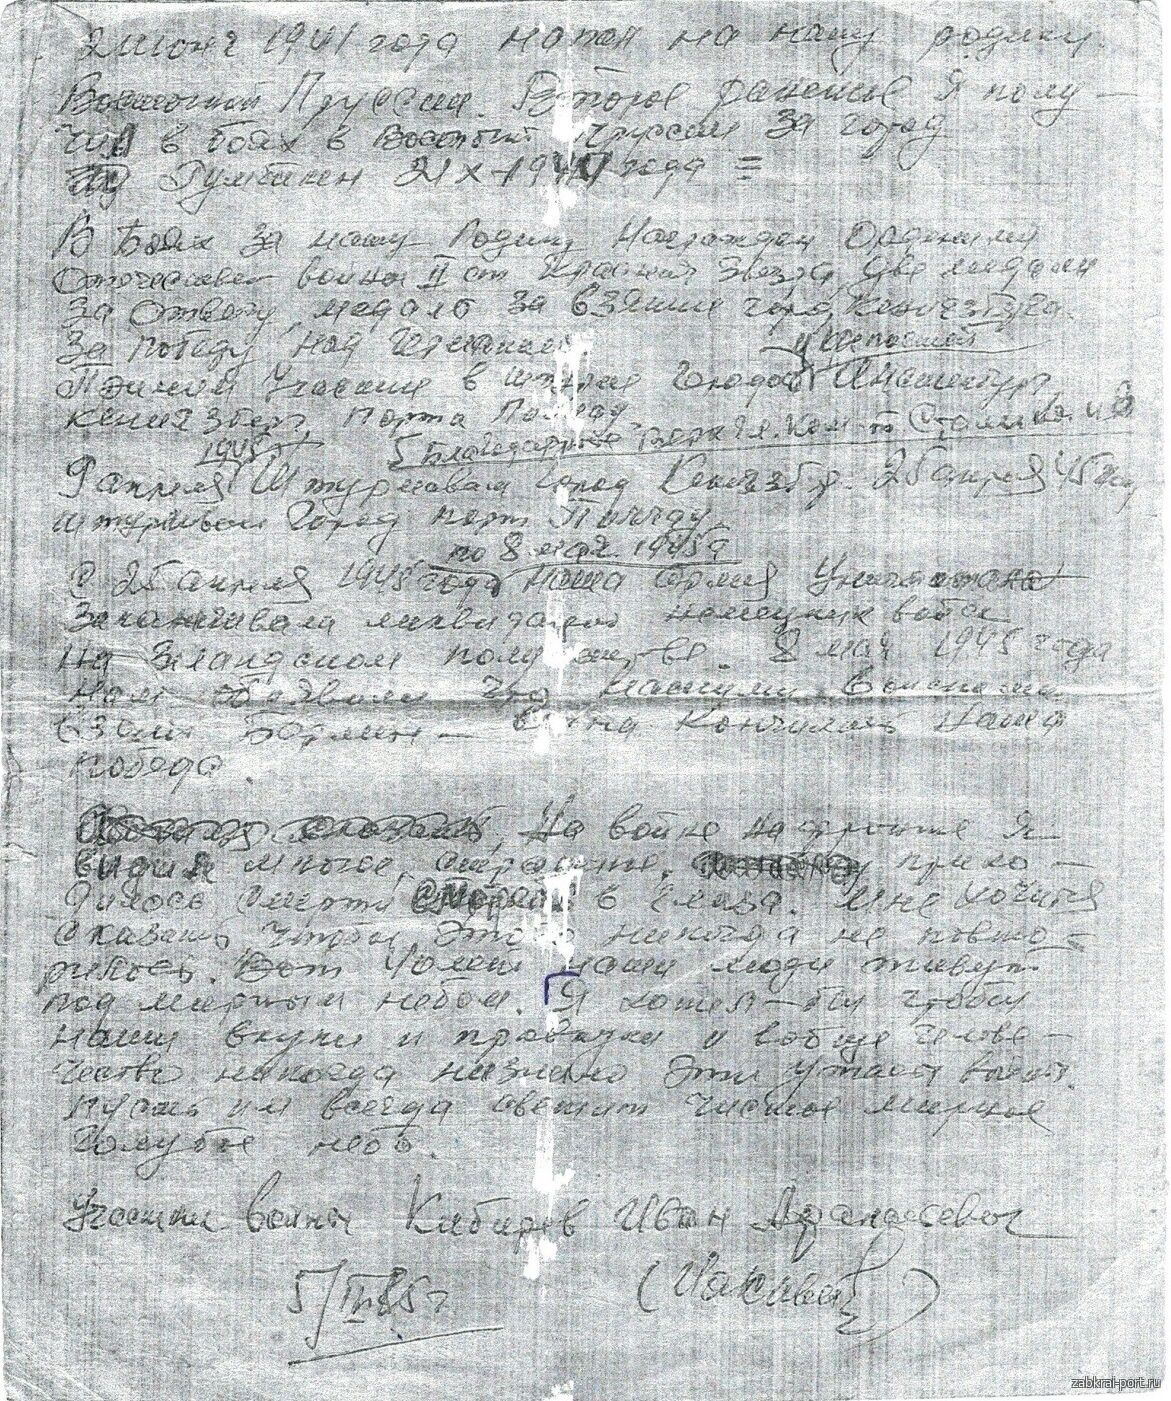 июня 1941 года напал на нашу родину.
Восточной Пруссии. Второе ранение Я полу-
чил в боях в Восточ Пруссии За город
Гумбинен 21 X-194 года =
В Боях За нашу Родину Награжден Орденами
Отечествен войны II ст Красная Звезда, две медали
За Отвагу, медаль За взятие город Кенигзбуга.
За победу над Германией
Участие в штурме Городов
Кенигзберг, Порта Пиллау
1945 г 5 Благодарность Сталина. И. В
9 апреля Штурмовали Город Кенигзбер. 25 апреля 45 году
штурмовали Город порт Пиллау.
по 8 мая 1945 г
С 25 апреля 1945 года наша армия Уничтожала
Заканчивали ликвидацию немецких войск
на Земландском полуострове. 8 мая 1945 года
нам объявили что нашими Войсками
взят Берлин- Война Кончилась Наша
победа.
На войне на фронте Я
видел многое, страшное, прихо-
дилось Смерти смотреть в глаза. Мне хочется
Сказать, чтобы Этого никогда не повто-
рилось. Вот 40 лет наши люди живут
под мирным небом. Я хотел-бы чтобы
наши внуки и правнуки и вобще челове-
чество никогда не знало Эти ужасы войны.
Пусть им всегда светит чистое мирное
голубое небо.
Участник войны Кибирев Иван Афанасьевич
5/III 85 г.
zabkrai-port.ru